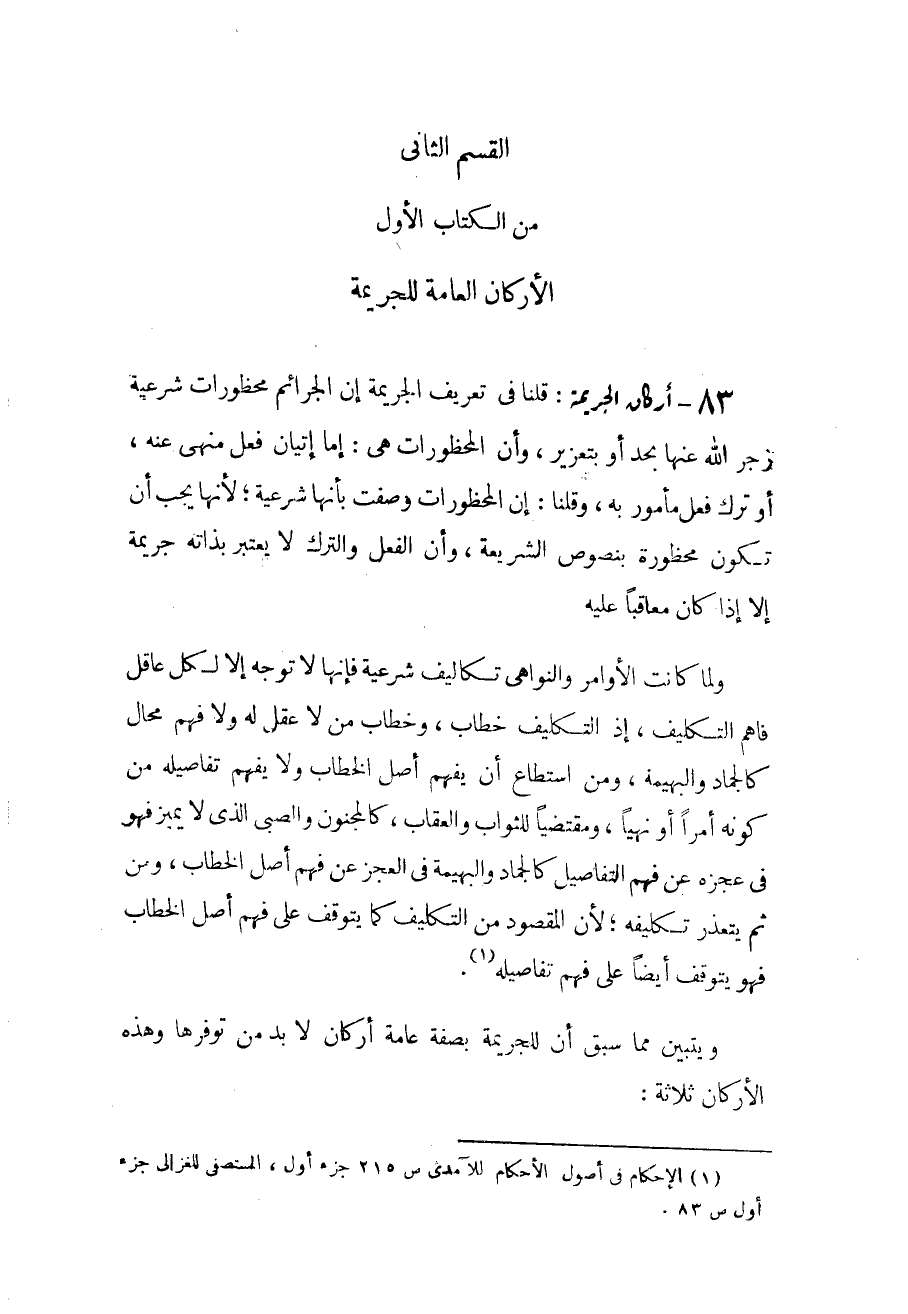 القسم الثانى
من الكتاب الأول
الأركان العامة للجريمة
٨٣ – أركان الجريمة : قلنا فى تعريف الجريمة إن الجرائم محظورات شرعية
زجر الله عنها بحد أو بتعزير ، وأن المحظورات هى : إما إتيان فعل منهى عنه ،
أو ترك فعل مأمور به ، وقلنا : إن المحظورات وصفت بأنها شرعية ؛ لأنها يجب أن
تكون محظورة بنصوص الشريعة ، وأن الفعل والترك لا يعتبر بذاته جريمة
إلا إذا كان معاقباً عليه
ولما كانت الأوامر والنواهى تكاليف شرعية فإنها لا توجه إلا لكل عاقل
فاهم التكليف ، إذ التكليف خطاب ، وخطاب من لا عقل له ولا فهم محال
كالجماد والبهيمة ، ومن استطاع أن يفهم أصل الخطاب ولا يفهم تفاصيله من
كونه أمراً أو نهياً ، ومقتضياً للثواب والعقاب ، كالمجنون والصبى الذى لا يميز فهو
فى عجزه عن فهم التفاصيل كالجماد والبهيمة فى العجز عن فهم أصل الخطاب ، ومن
ثم يتعذر تكليفه ؛ لأن المقصود من التكليف كما يتوقف على فهم أصل الخطاب
فهو يتوقف أيضاً على فهم تفاصيله(١).
ويتبين مما سبق أن للجريمة بصفة عامة أركان لا بد من توفرها وهذه
الأركان ثلاثة :
(١) الإحكام فى أصول الأحكام للآمدى س ٢١٥ جزء أول ، المستصفى للغزالى جزء
أول س ٨٣ .